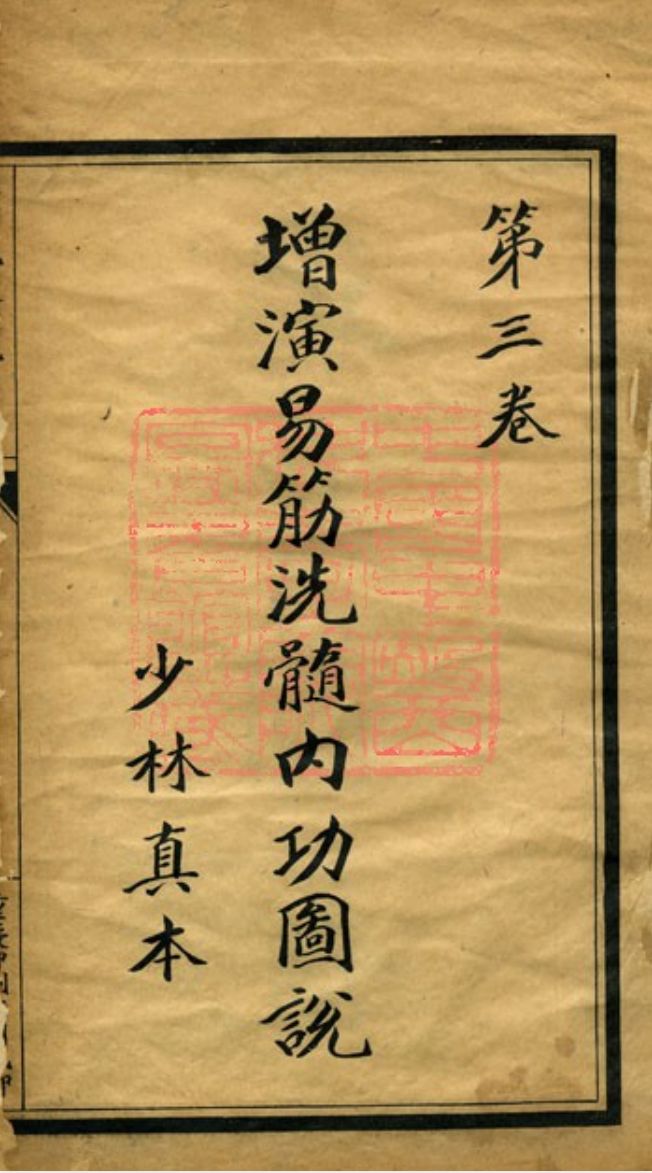 第三卷
增演易筋洗髓內功圖說
少林真本